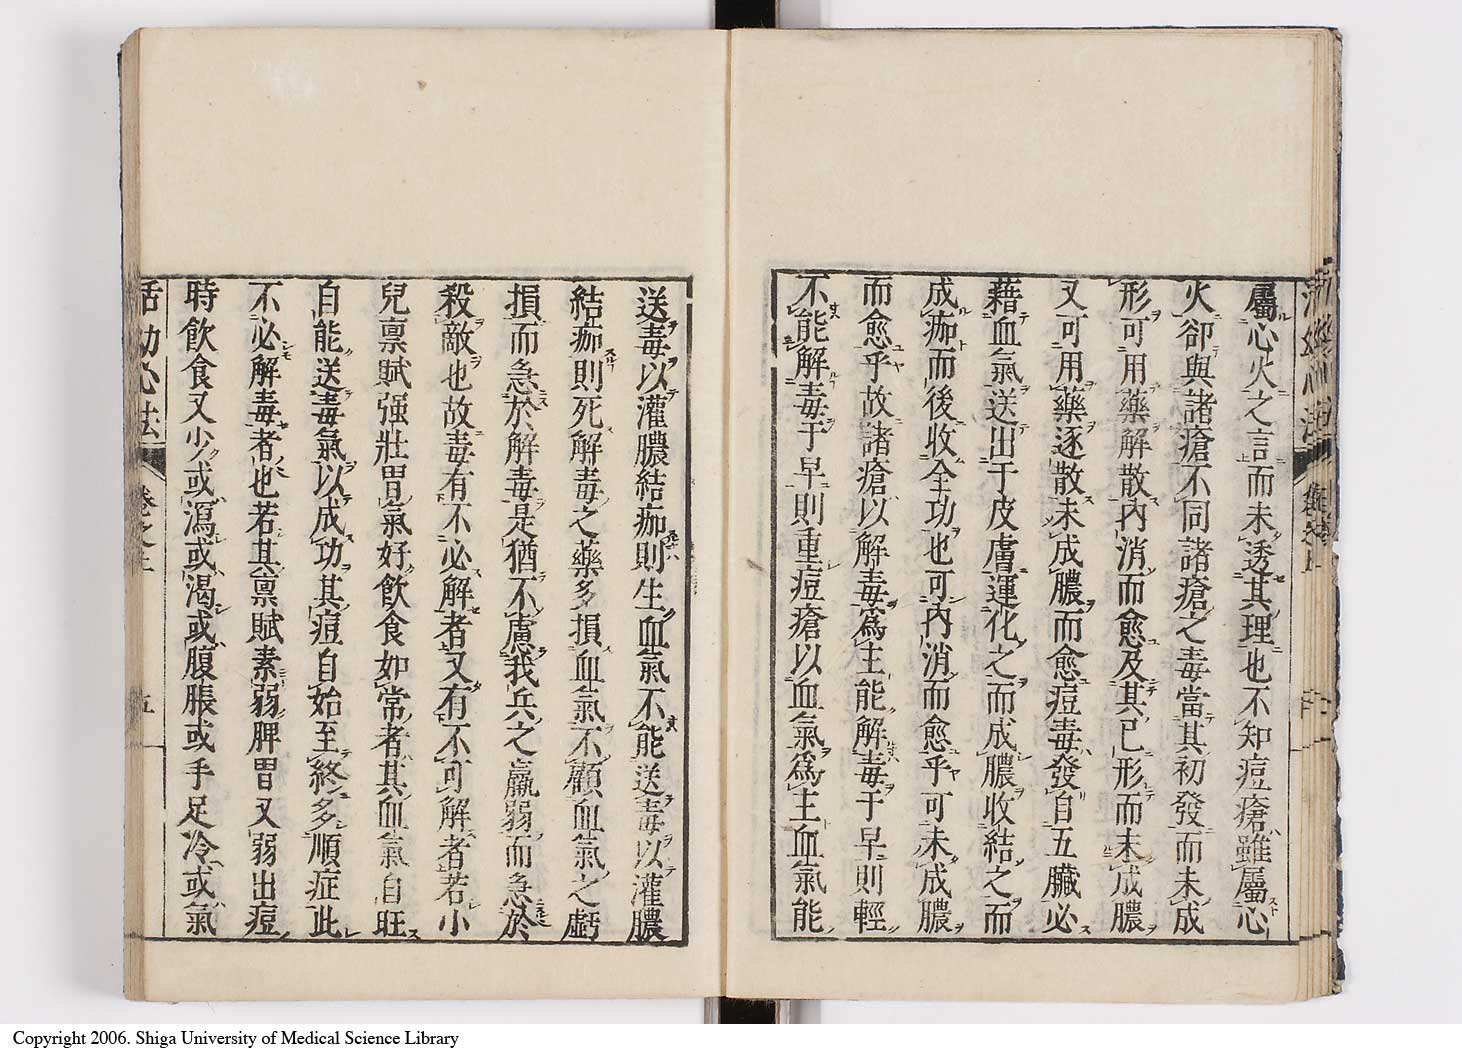 屬心火之言而未透其理也不知痘瘡雖屬心
火卻與諸瘡不同諸瘡之毒當其初發而未成
形可用藥解散内消而愈及其已形而未成膿
又可用藥逐散未成膿而愈痘毒發自五臟必
藉血氣送出于皮膚運化之而成膿收結之而
成痂而後收全功也可内消而愈乎可未成膿
而愈乎故諸瘡以解毒爲主能解毒于早則輕
不能解毒于早則重痘瘡以血氣爲主血氣能
送毒以灌膿結痂則生血氣不能送毒以灌膿
結痂則死解毒之藥多損血氣不顧血氣之虧
損而急於解毒是猶不慮我兵之羸弱而急於
殺敵也故毒有不必解者又有不可解者若小
兒禀賦强壯胃氣好飲食如常者其血氣自旺
自能送毒氣以成功其痘自始至終多順症此
不必解毒者也若其禀賦素弱脾胃又弱出痘
時飲食又少或瀉或渴或腹脹或手足冷或氣
活幼心法
卷之三
五
Copyright 2006. Shiga University of Medical Science Library